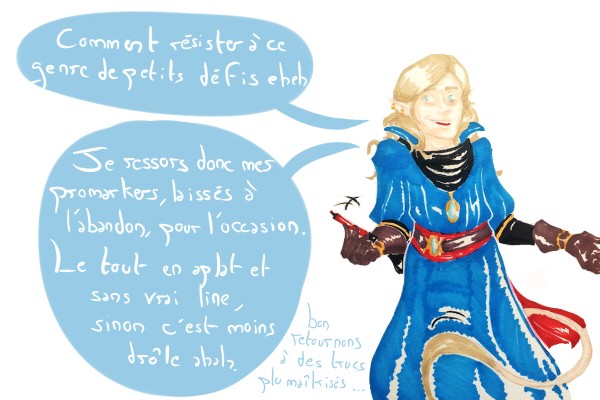 Comment résister à ce
genre de petits défis eheh
Je ressors donc mes
promarkers, laissés à
l'abandon, pour l'occasion.
Le tout en aplat et
sans vrai line,
sinon c'est moins
drôle ahah.
bon
retournons
à des trucs
plu maîtrisés...